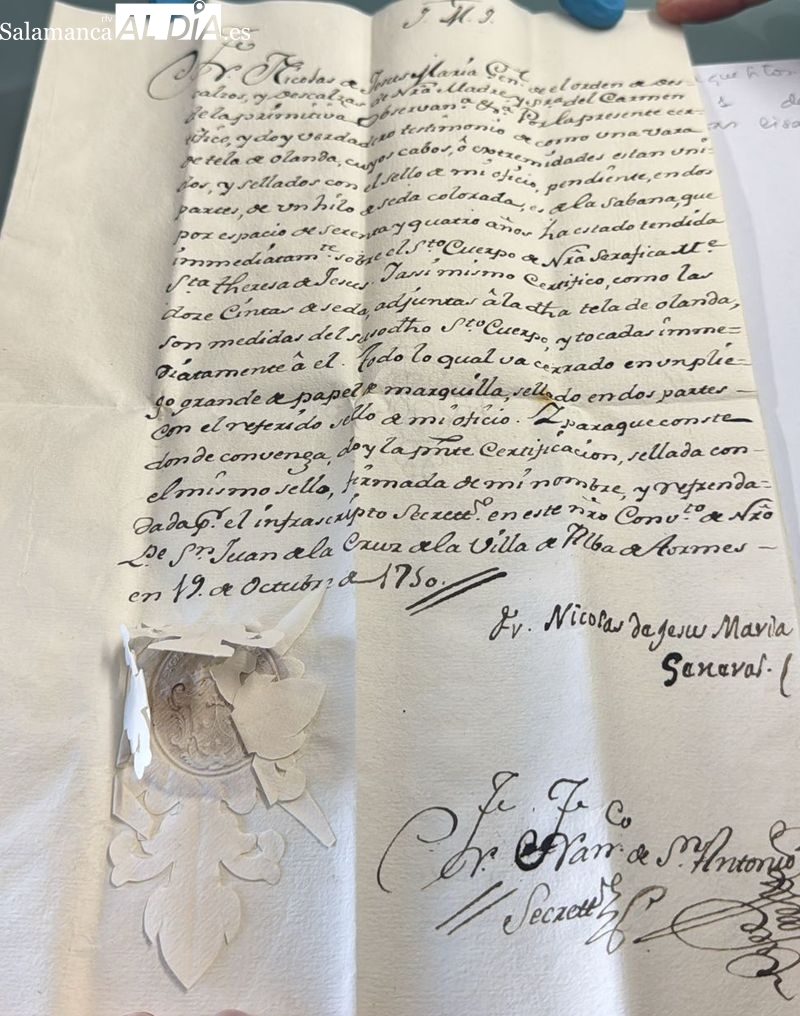 Salamanca rtv ALDÍA.es
J. M. J.
Fr. Nicolas de Jesus Maria Gen.l de el orden de Des=
calzos, y Descalzas de Nrã Madre, y Sra. del Carmen
de la primitiva Observan.a &a. Por la presente cer=
tifico, y doy verdadero testimonio de como una vara
de tela de olanda, cuyos cabos, ô extremidades estan uni=
dos, y sellados con el sello de mi oficio, pendiente, en dos
partes, de un hilo de seda colorada, es de la Sabana, que
por espacio de setenta y quatro años ha estado tendida
immediatam.te sobre el S.to Cuerpo de Nrã Serafica M.e
S.ta Theresa de Jesus. Iassi mismo Certifico, como las
doze Cintas de seda, adjuntas â la dha tela de olanda,
son medidas del susodho S.to Cuerpo, y tocadas imme=
diatamente â el. Todo lo qual va cerrado en un plie=
go grande de papel de marquilla, sellado en dos partes -
con el referido sello de mi oficio. Y para que conste
donde convenga, doy la pnte Certificacion, sellada con -
el mismo sello, firmada de mi nombre, y refrenda=
dada p.r el infrascripto Secrett.o en este nrõ Conv.to de Nrõ
P.e S.n Juan de la Cruz de la Villa de Alba de Tormes -
en 19. de Octubre de 1750.
Fr. Nicolas de Jesus Maria
General.
Fr. Fran.co de S.n Antonio
Secrett.o